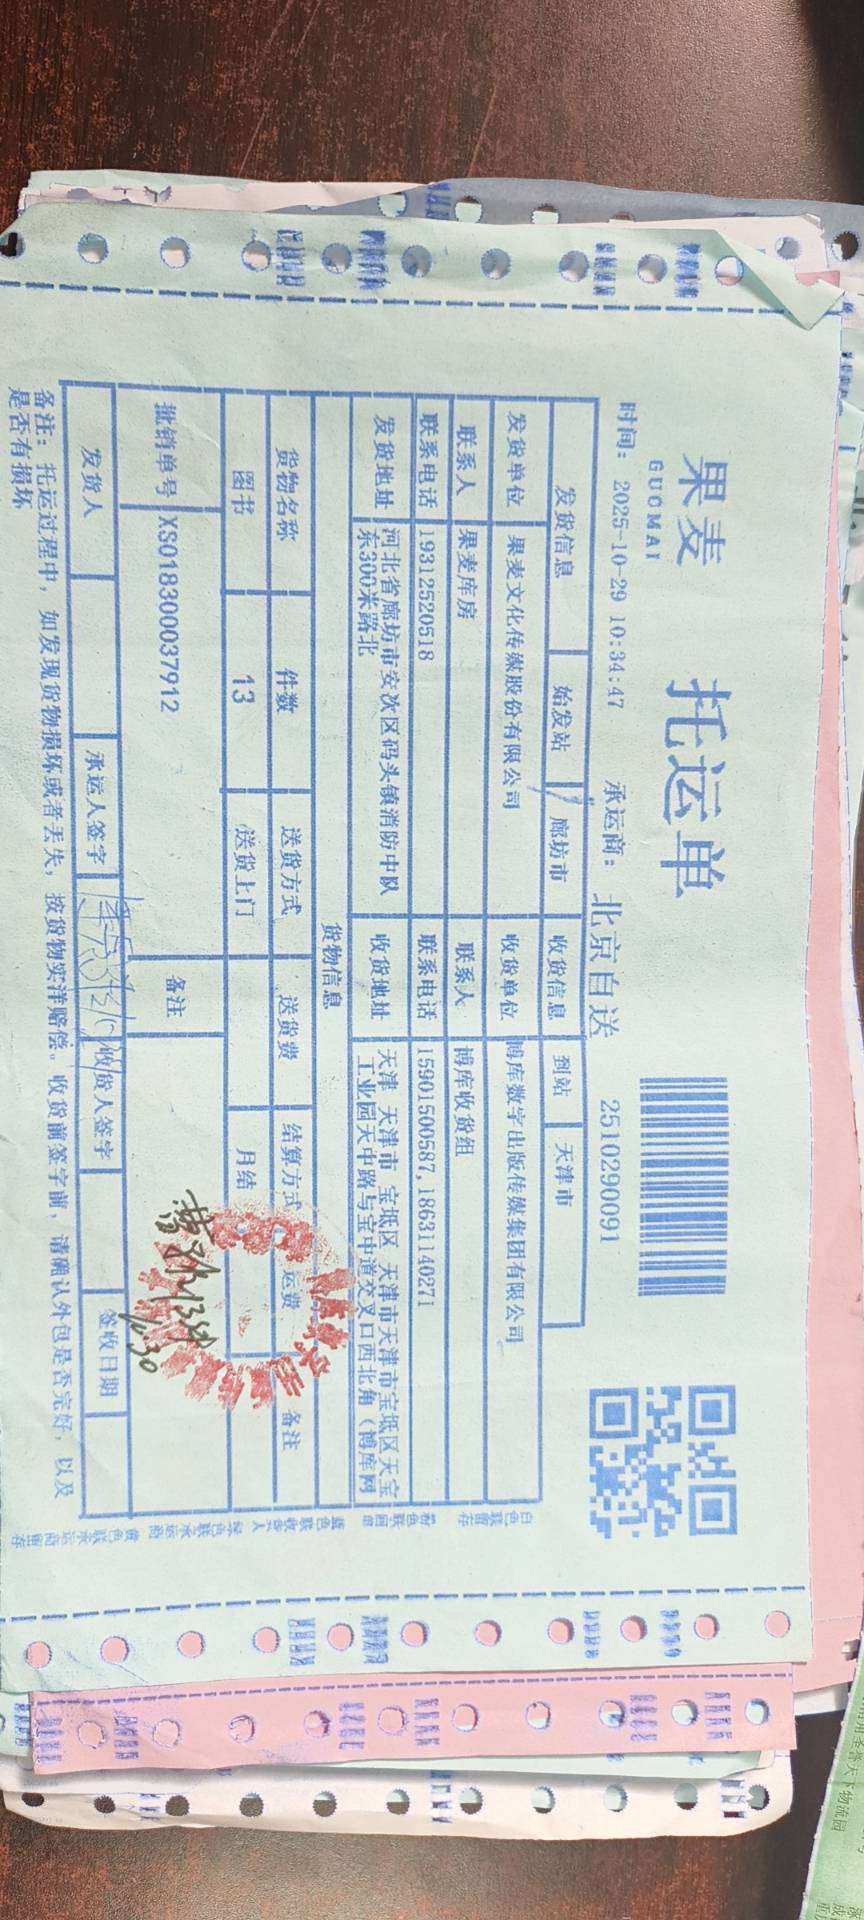 果麦
GUOMAI
托运单
时间: 2025-10-29 10:34:47 承运商: 北京自送 2510290091
发货信息 始发站 廊坊市 收货信息 到站 天津市
发货单位 果麦文化传媒股份有限公司 收货单位 博库数字出版传媒集团有限公司
联系人 果麦库房 联系人 博库收货组
联系电话 19312520518 联系电话 15901500587,18631140271
发货地址 河北省廊坊市安次区码头镇消防中队 收货地址 天津 天津市 宝坻区 天津市天津市宝坻区天宝
东300米路北 工业园天中路与宝中道交叉口西北角（博库网
货物信息
货物名称 件数 送货方式 送货费 结算方式 运费 备注
图书 13 送货上门 月结
批销单号 XS018300037912 备注
10.30
发货人 承运人签字 收货人签字 签收日期
备注: 托运过程中, 如发现货物损坏或者丢失, 按货物实洋赔偿。收货前签字前, 请确认外包是否完好, 以及
是否有损坏
白色联留存
粉色联回单
蓝色联收货人
绿色联承运商
黄色联承运商留存
天下物流园